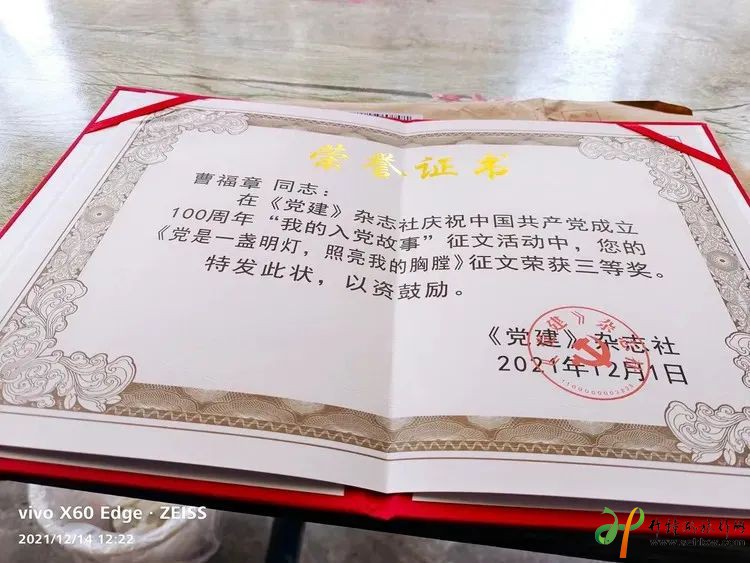 荣誉证书
曹福章 同志：
在《党建》杂志社庆祝中国共产党成立
100周年“我的入党故事”征文活动中，您的
《党是一盏明灯，照亮我的胸膛》征文荣获三等奖。
特发此状，以资鼓励。
《党建》杂志社
2021年12月1日
vivo X60 Edge · ZEISS
2021/12/14 12:22